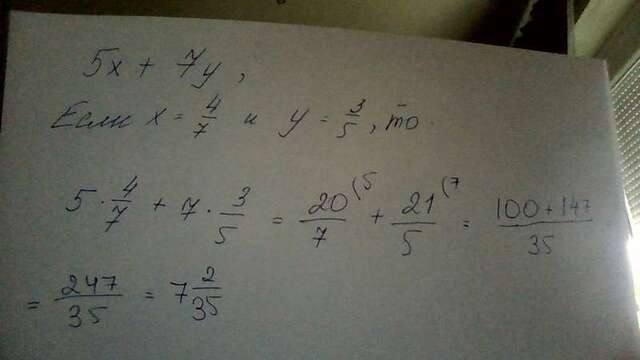 5x + 7y,
Если x = 4/7 и y = 3/5, то
5 · 4/7 + 7 · 3/5 = 20/7 (5 + 21/5 (7 = 100 + 147/35
= 247/35 = 7 2/35